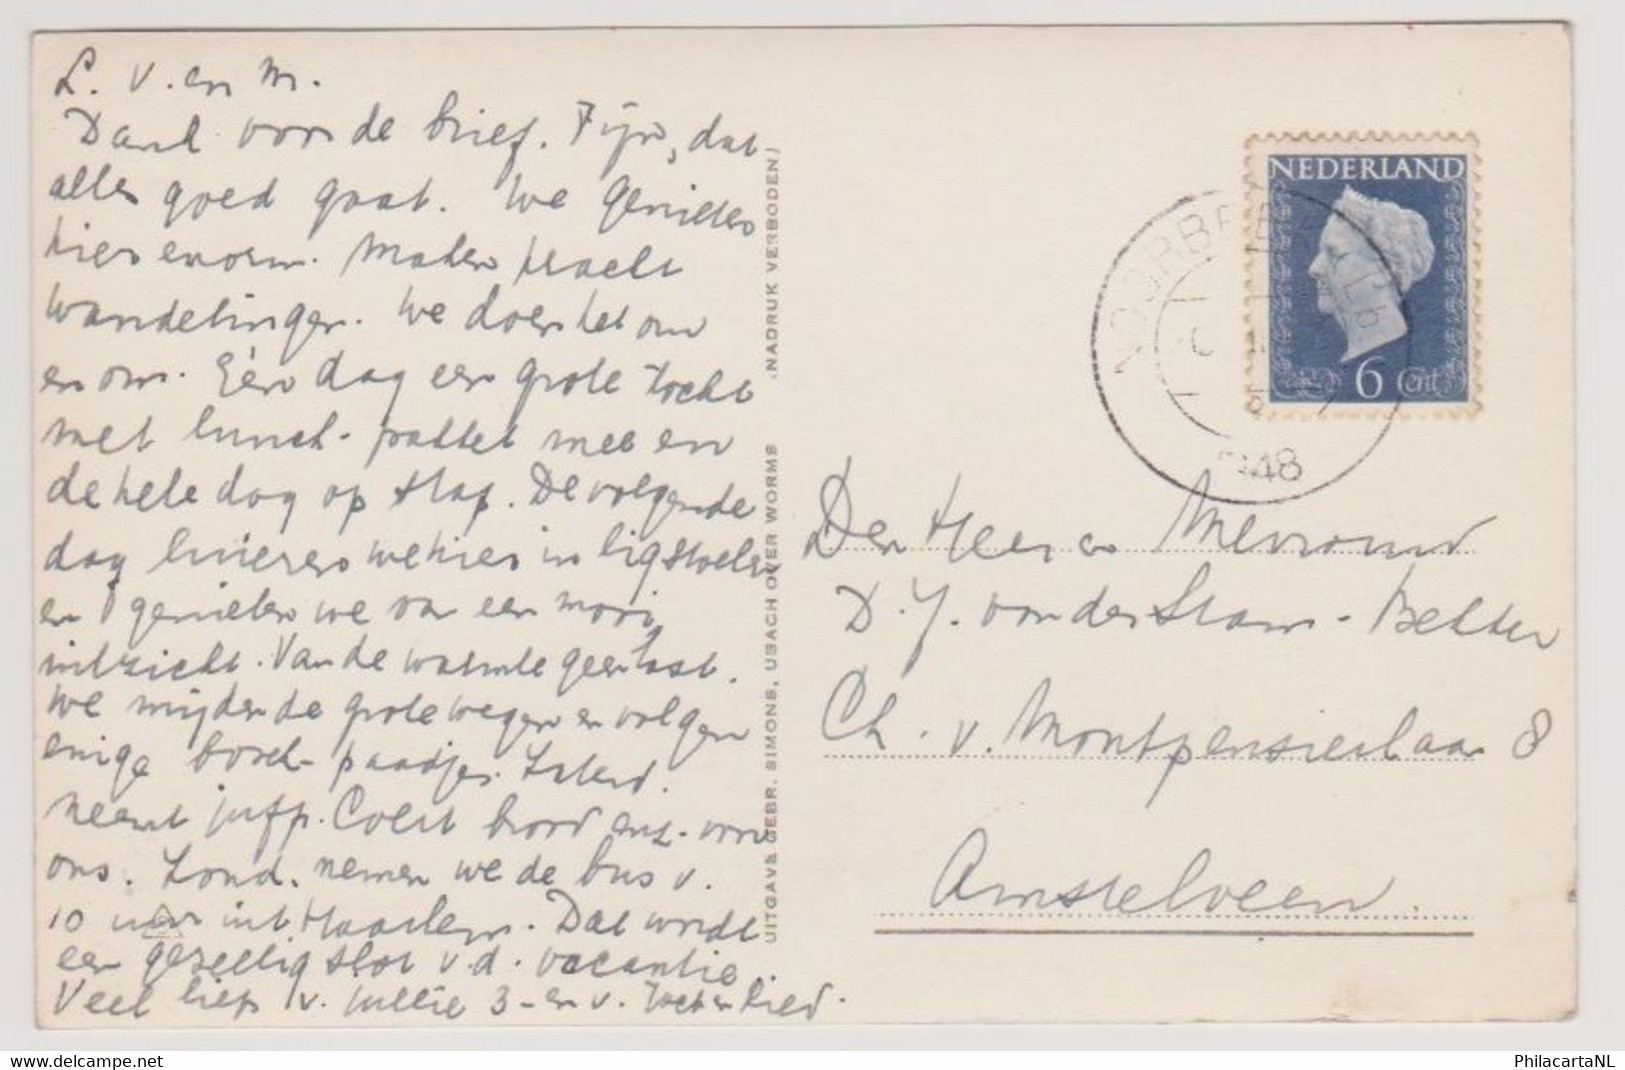 L. V. en M.
Dank voor de brief. Fijn, dat
alles goed gaat. We genieten
hier enorm. Maken pracht
wandelingen. We doen het om
en om. Eén dag een grote tocht
met lunch-pakket mee en
de hele dag op stap. De volgende
dag luieren we hier in ligstoelen
en genieten we van een mooi
uitzicht. Van de warmte geen last.
We mijden de grote wegen en volgen
enige bosch-paadjes. Zaterd.
neemt juffr. Coert brood enz. voor
ons. Zond. nemen we de bus v.
10 uur uit Haarlem. Dat wordt
een gezellig slot v.d. vacantie.
Veel liefs v. jullie 3 - en v.
UITGAVE GEBR. SIMONS, UBACH OVER WORMS (NADRUK VERBODEN)
NEDERLAND
6 Cent
NOORBEEK
1948
Den Heer en Mevrouw
D. J. van der Stam - Bekker
Ch. v. Montpensierlaan 8
Amstelveen.
PhilacartaNL
www.delcampe.net